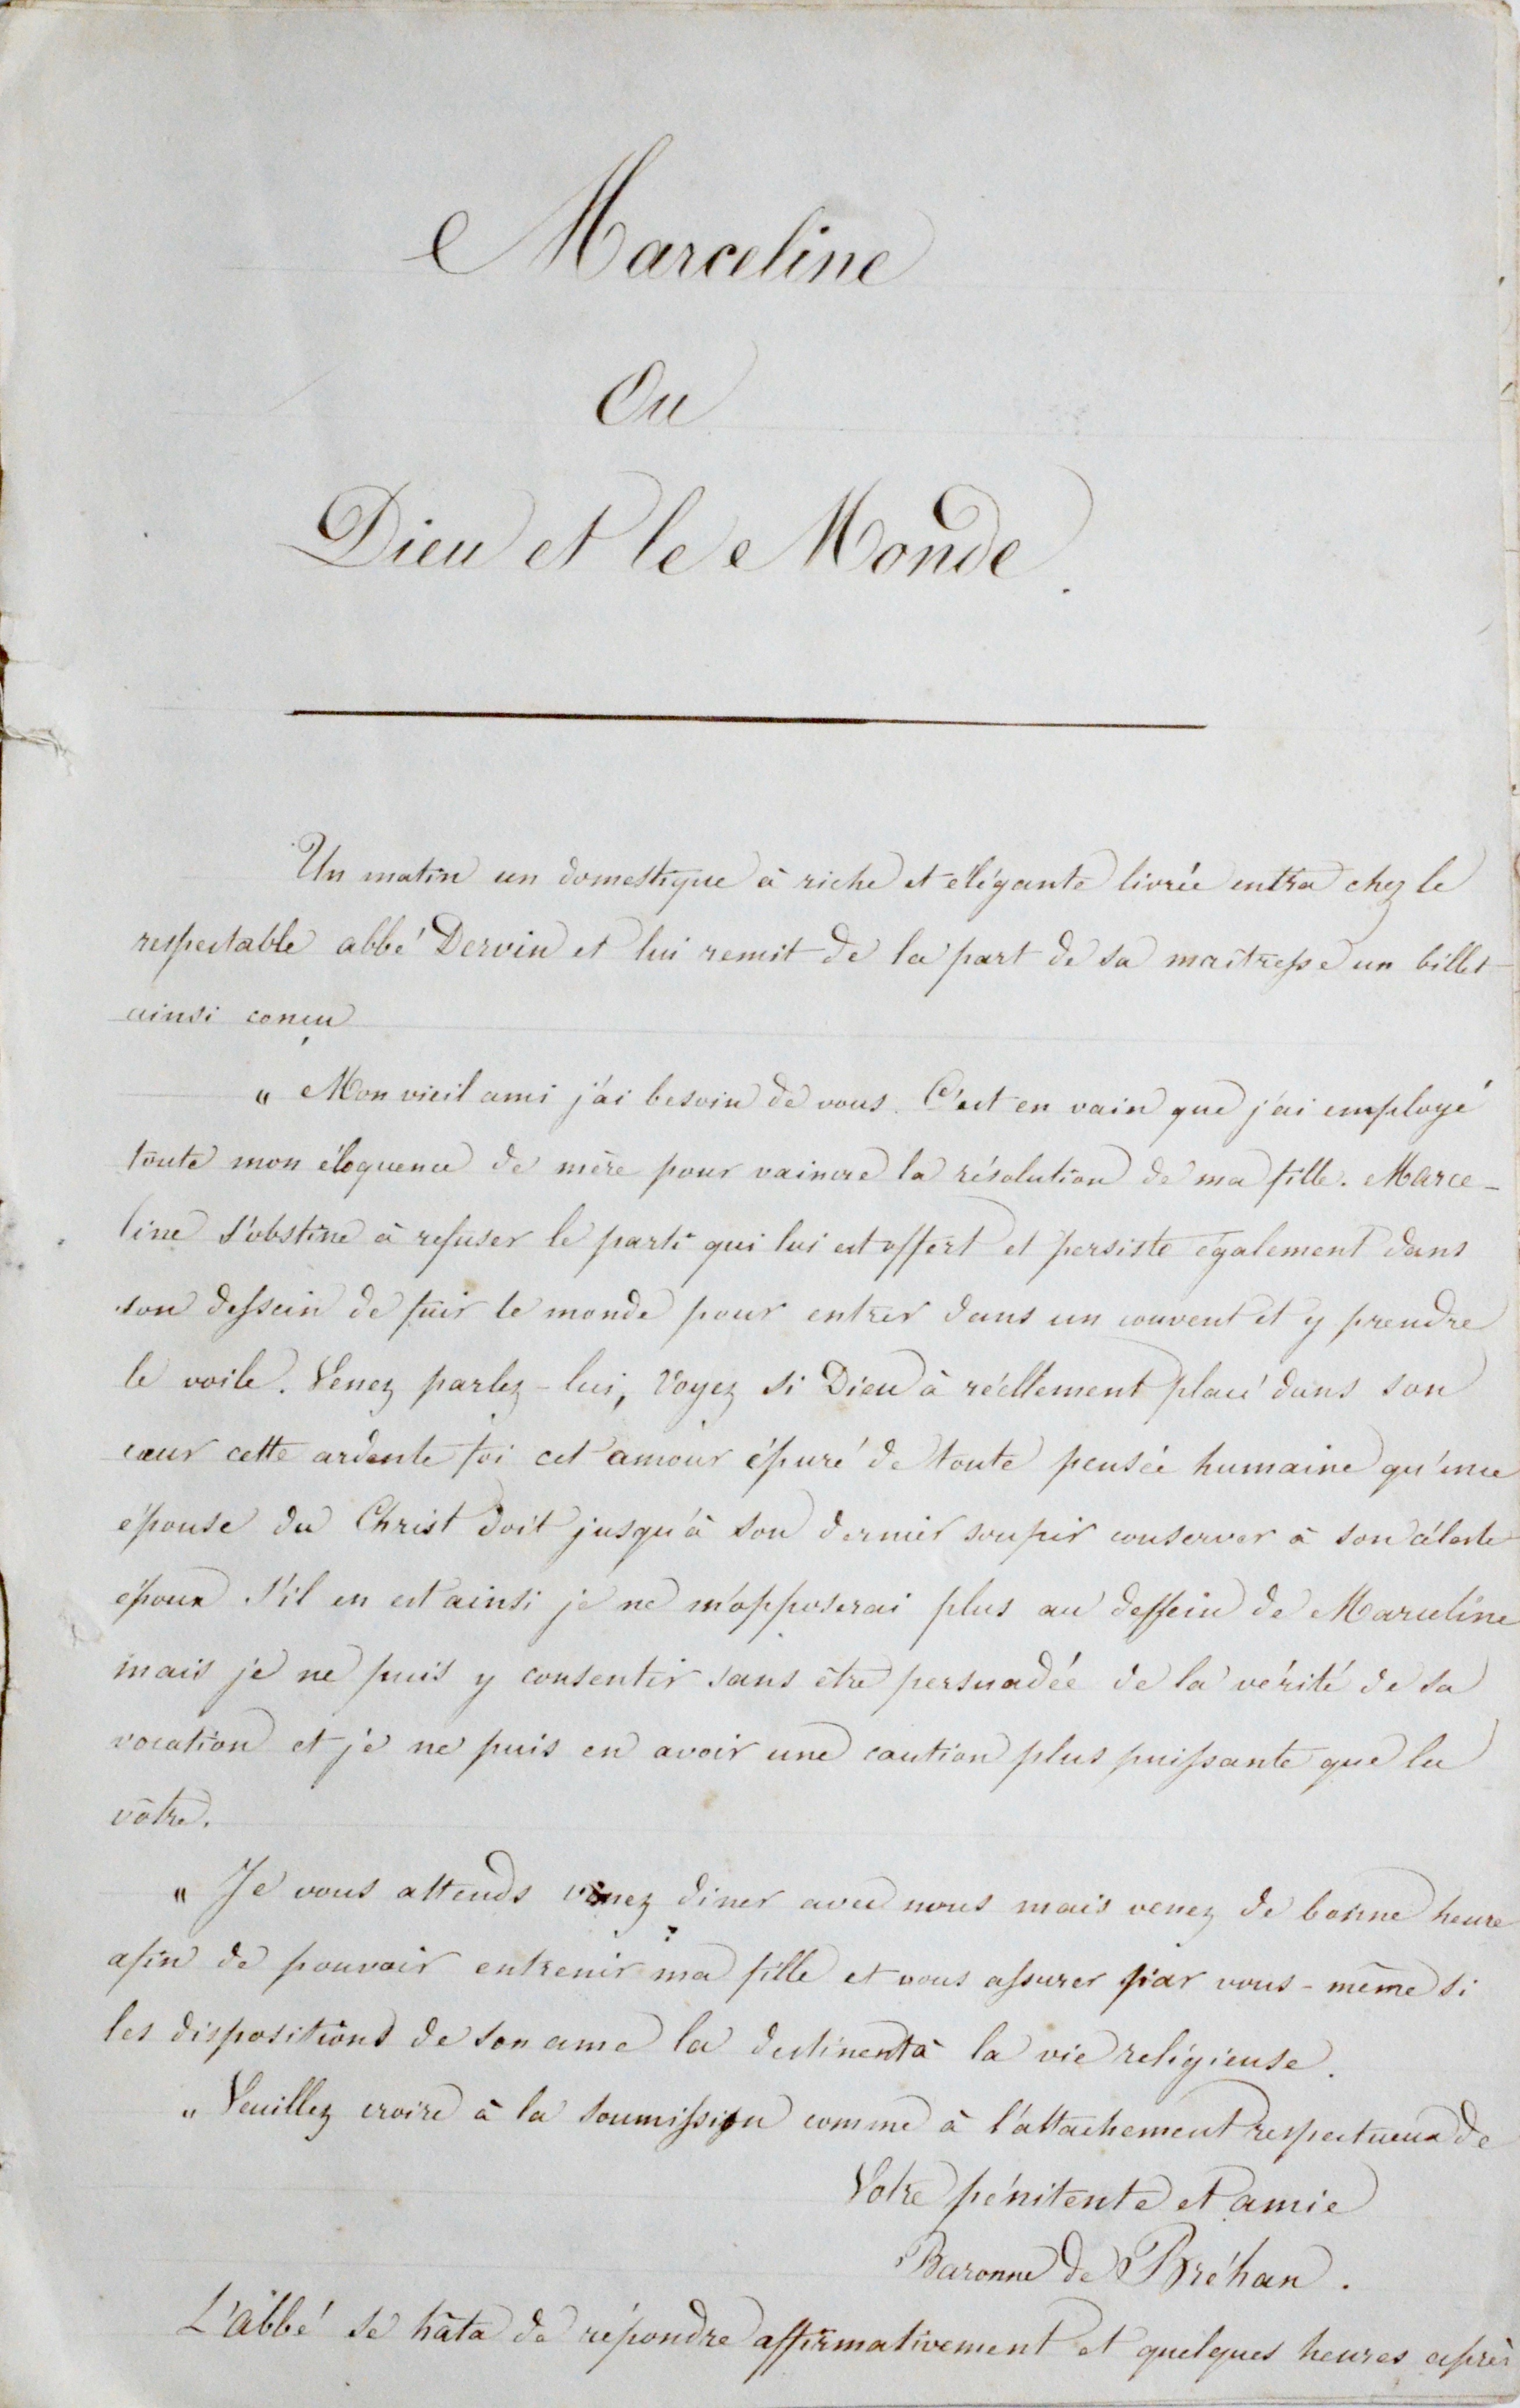 Marceline
Ou
Dieu et le Monde.
Un matin un domestique à riche et élégante livrée entra chez le
respectable abbé Dervin et lui remit de la part de sa maîtresse un billet
ainsi conçu
" Mon vieil ami j'ai besoin de vous. C'est en vain que j'ai employé
toute mon éloquence de mère pour vaincre la résolution de ma fille. Marce-
line s'obstine à refuser le parti qui lui est offert et persiste également dans
son dessein de fuir le monde pour entrer dans un couvent et y prendre
le voile. Venez parlez-lui, Voyez si Dieu à réellement placé dans son
cœur cette ardente foi cet amour épuré de toute pensée humaine qu'une
épouse du Christ doit jusqu'à son dernier soupir conserver à son céleste
époux S'il en est ainsi je ne m'opposerai plus au dessein de Marceline
mais je ne puis y consentir sans être persuadée de la vérité de sa
vocation et je ne puis en avoir une caution plus puissante que la
vôtre.
" Je vous attends venez diner avec nous mais venez de bonne heure
afin de pouvoir entrenir ma fille et vous assurer par vous-même si
les dispositions de son ame la destinent à la vie religieuse.
" Veuillez croire à la soumission comme à l'attachement respectueux de
Votre pénitente et amie
Baronne de Bréhan.
L'abbé se hâta de répondre affirmativement et quelques heures après